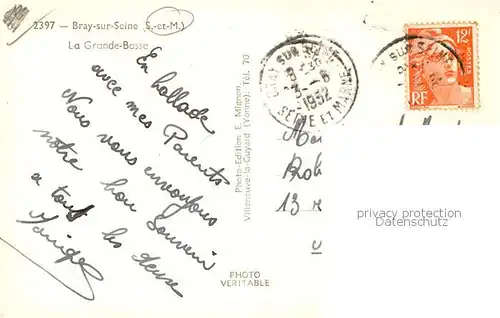 2397 - Bray-sur-Seine (S.-et-M.)
La Grande-Bosse
En ballade
avec mes Parents
Nous vous envoyons
notre bon Souvenir
a tout les deux
Photo-Edition E. Mignon
Villeneuve-la-Guyard (Yonne). Tél. 70
PHOTO
VERITABLE
SUR SEINE
1952
SEINE ET MARNE
12F
POSTES
RF
13
privacy protection
Datenschutz